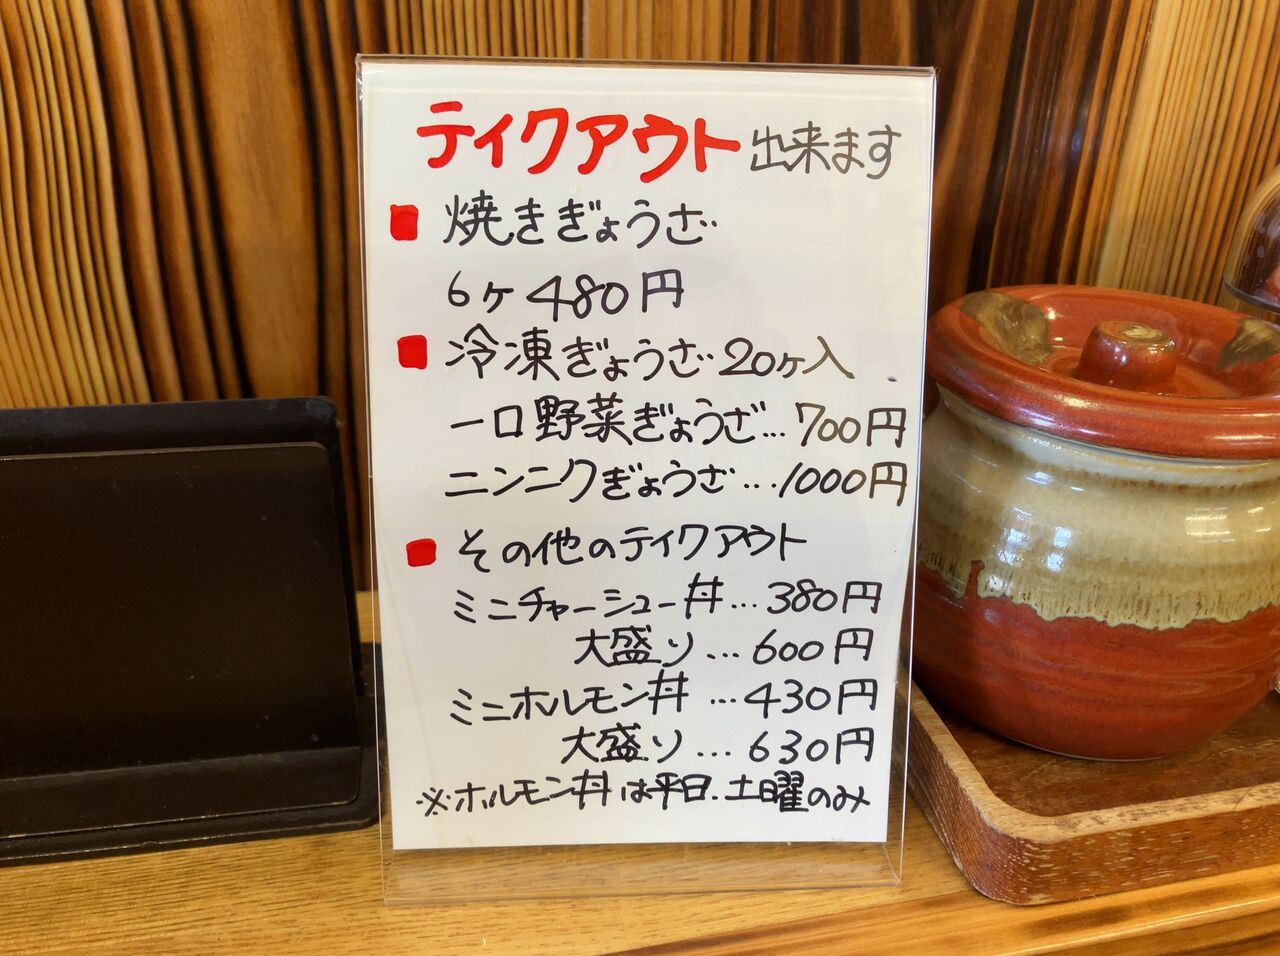 テイクアウト出来ます
■ 焼きぎょうざ
6ヶ 480円
■ 冷凍ぎょうざ 20ヶ入
一口野菜ぎょうざ…700円
ニンニクぎょうざ…1000円
■ その他のテイクアウト
ミニチャーシュー丼…380円
大盛り…600円
ミニホルモン丼…430円
大盛り…630円
※ホルモン丼は平日.土曜のみ